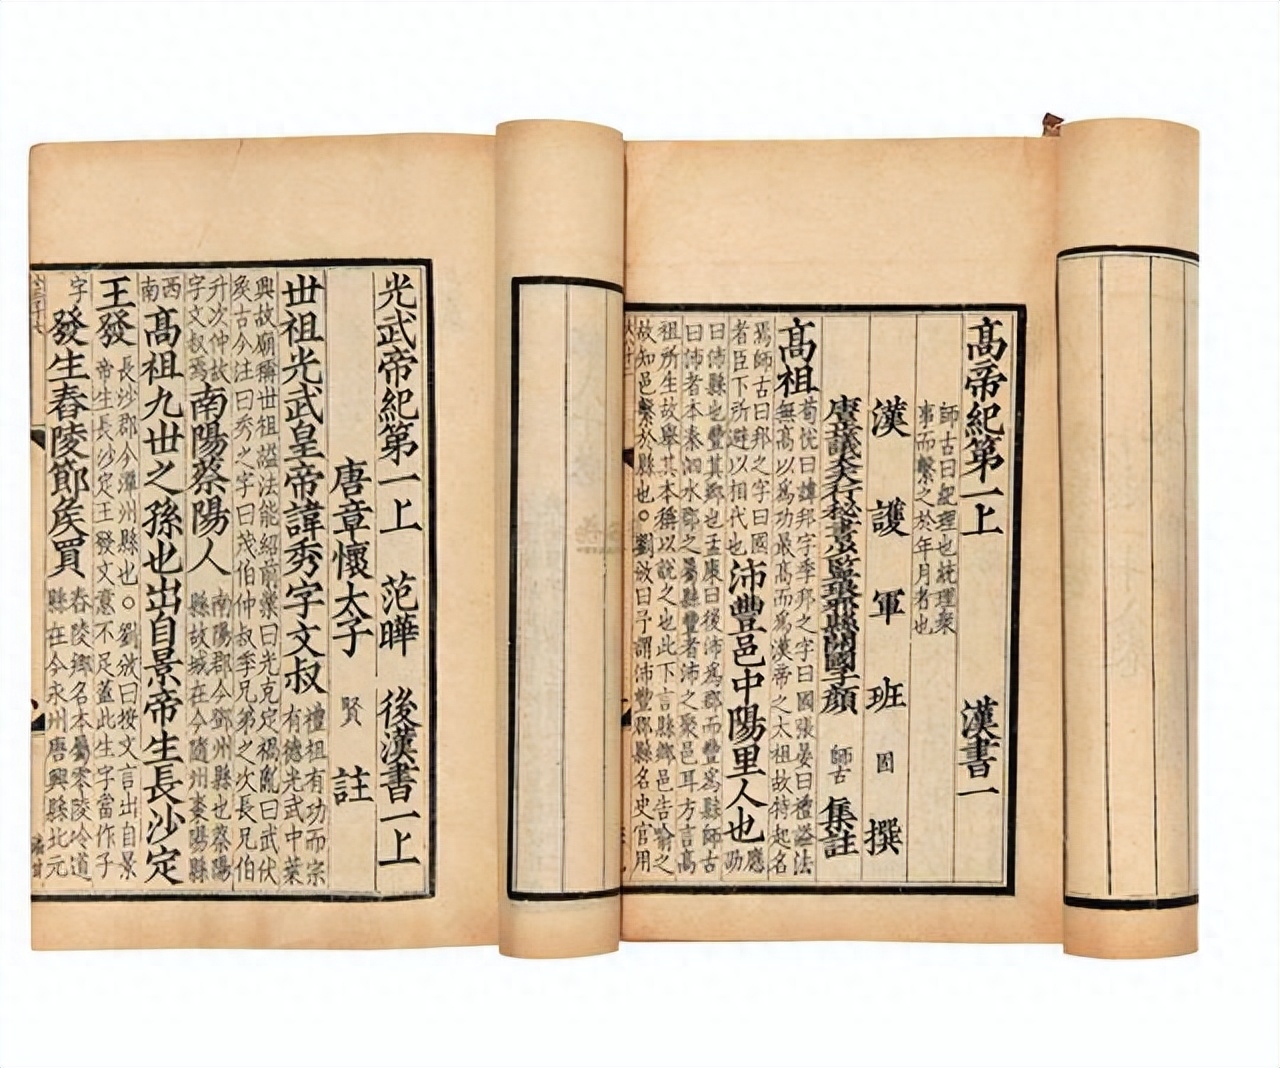 高帝紀第一上 漢書一
師古曰紀理也統理衆
事而繫之於年月者也
漢護軍班固撰
唐正議大夫行秘書少監琅邪縣開國子顔師古集註
高祖 荀悅曰諱邦字季邦之字曰國張晏曰禮謚法
無高以爲功最高而爲漢帝之太祖故特起名
焉師古曰邦之字曰國
者臣下所避以相代也 沛豐邑中陽里人也 應劭
曰沛縣也豐其鄉也孟康曰後沛爲郡而豐爲縣師古
曰沛者本秦泗水郡之屬縣豐者沛之聚邑耳方言高
祖所生故舉其本稱以說之也此下言縣鄉邑告喻之
故知邑繫於縣也。劉攽曰予謂沛豐郡縣名史官用
光武帝紀第一上 范曄 後漢書一上
唐章懷太子賢註
世祖光武皇帝諱秀字文叔 禮祖有功而宗
有德光武中葉
興故廟稱世祖謚法能紹前業曰光克定禍亂曰武伏
侯古今注曰秀之字曰茂伯仲叔季兄弟之次長兄伯
升次仲故
字文叔焉 南陽蔡陽人 南陽郡今鄧州縣也蔡陽
縣故城在今隨州棗陽縣
西南 高祖九世之孫也出自景帝生長沙定
王發 長沙郡今潭州縣也。劉攽曰按文言出自景
帝生長沙定王發文意不足蓋此生字當作子
字 發生舂陵節侯買 舂陵鄉名本屬零陵泠道
縣在今永州唐興縣北元